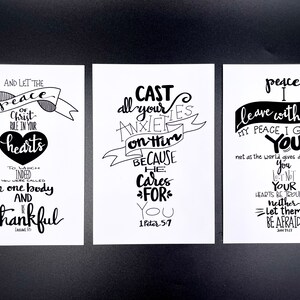 AND LET THE
peace
OF
Christ
RULE IN YOUR
hearts
TO WHICH
INDEED
YOU WERE CALLED
one body
AND
BE
thankful
CAST
all your
ANXIETIES
on Him
BECAUSE
HE
Cares
FOR
YOU
1 Peter 5:7
peace
I
leave with
MY PEACE I
YOU
not as the world gives
YOUR
HEARTS BE
neither
Let them
BE AFRAID